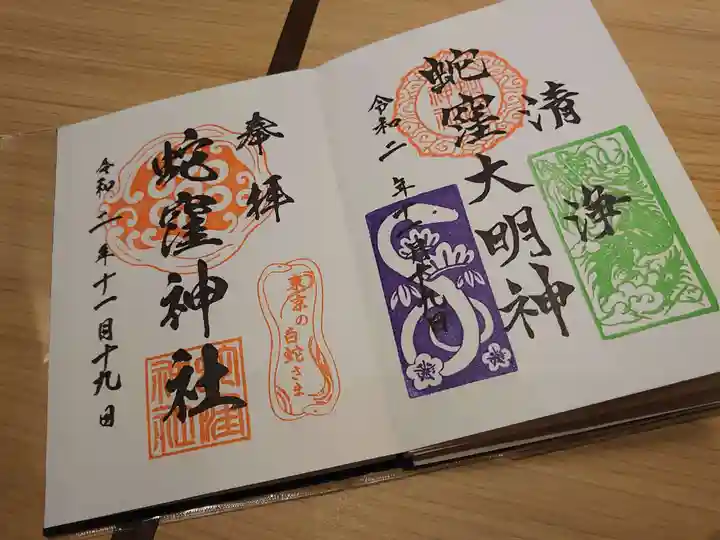 清浄
蛇窪大明神
令和二年十一月十九日
奉拝
東京の白蛇さま
蛇窪神社
令和二年十一月十九日